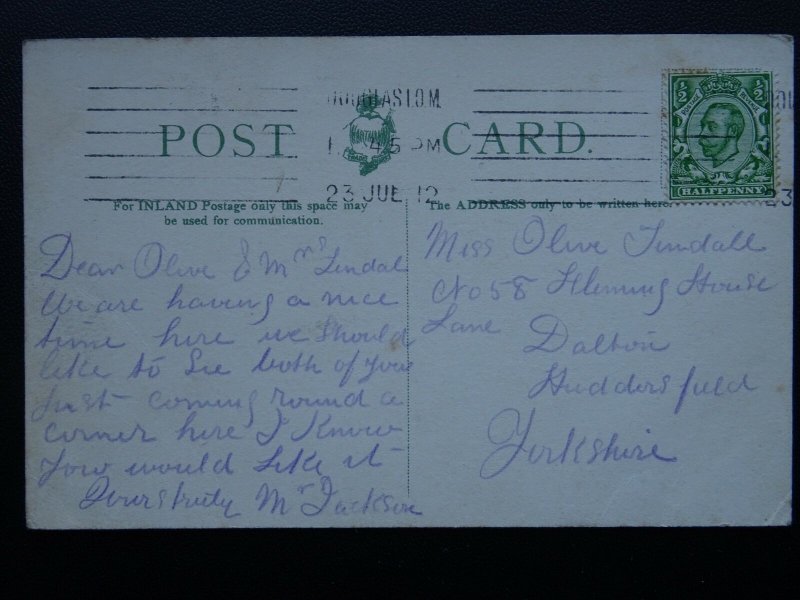 DOUGLAS I.O.M
POST CARD.
45 PM
23 JUL 12
23
½ ½
POSTAGE REVENUE
HALFPENNY
For INLAND Postage only this space may
be used for communication.
The ADDRESS only to be written here.
Dear Olive & Mrs Tendal
We are having a nice
time here we should
like to See both of you
just coming round a
corner here I Know
you would like it
Yours truly Mr Jackson
Miss Olive Tendall
No 58 Fleming House
Lane
Dalton
Huddersfield
Yorkshire